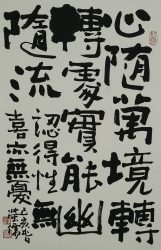 心隨萬境轉
轉處實能幽
隨流認得性無
喜亦無憂